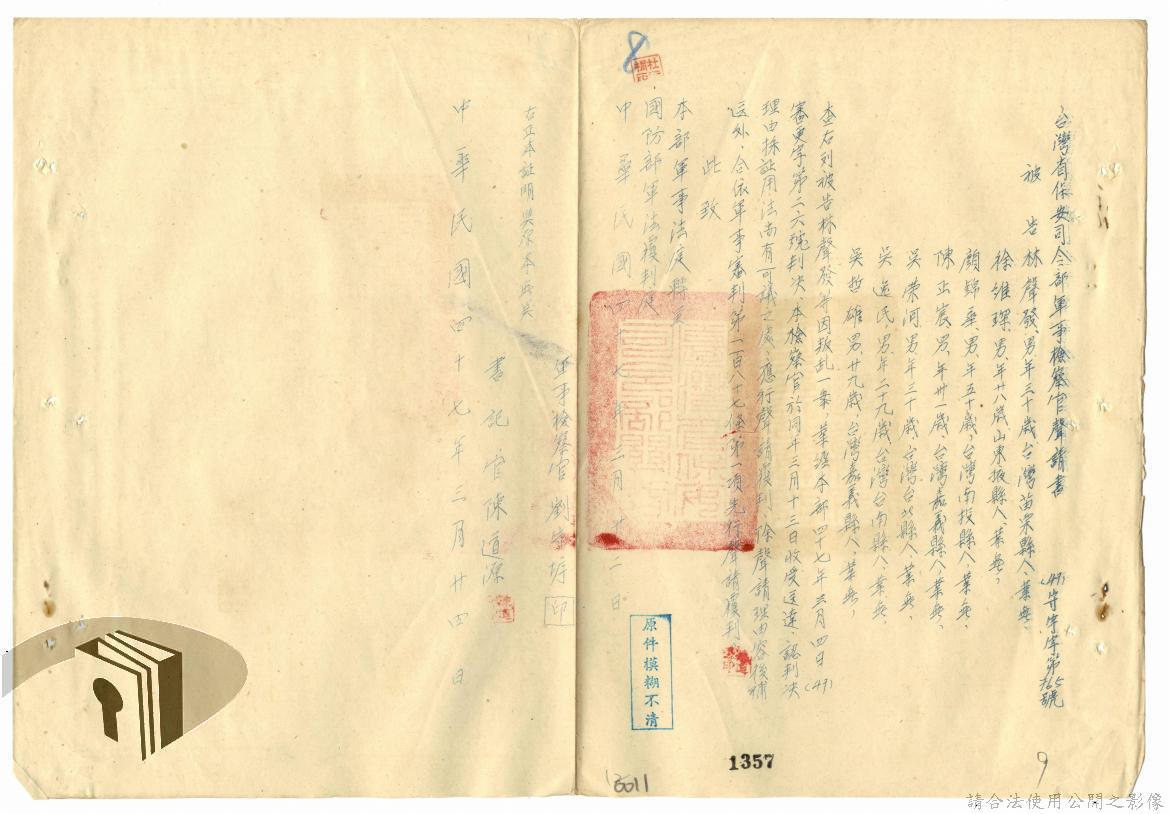 台灣省保安司令部軍事檢察官聲請書
(47)
字第365號
被告林聲發、男、年三十歲、台灣苗栗縣人、業無、
徐維琛、男、年廿八歲、山東掖縣人、業無、
顏錦華、男、年五十歲、台灣南投縣人、業無、
陳正宸、男、年卅一歲、台灣嘉義縣人、業無、
吳榮河、男、年三十歲、台灣台北縣人、業無、
吳逸民、男、年二十九歲、台灣台南縣人、業無、
吳哲雄、男、廿九歲、台灣嘉義縣人、業無、
查右列被告林聲發等因叛乱一案、業經本部四十七年三月四日(47)
審更字第二六號判决、本檢察官於同年三月十三日收受送達、認判决
理由採証用法尚有可議之處、應行聲請覆判、除聲請理由容後補
送外、合依軍事審判第一百八十七條第一項先行聲請覆判。
此致
本部軍事法庭縣呈
國防部軍法覆判使
中華民國四十七年三月廿一日
軍事檢察官劉
印
右正本証明與原本無異
書記官陳道源
中華民國四十七年三月廿四日
8
原件模糊不清
1357
13011
9
請合法使用公開之影像